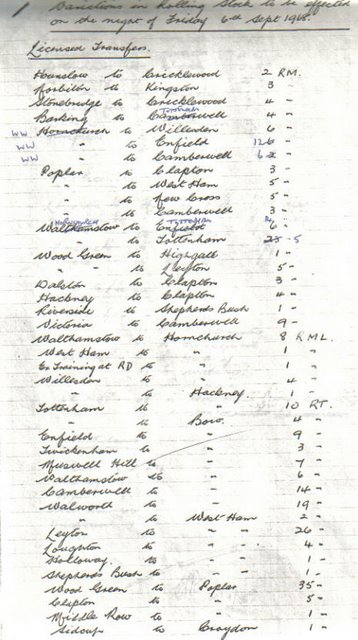 Sanctions in Rolling Stock to be effected
on the night of Friday 6th Sept 1968.
Licensed Transfers.
Hounslow to Cricklewood 2 RM.
Norbiton to Kingston 3 "
Stonebridge to Cricklewood 4 "
Tottenham
Barking to Camberwell 4 "
WW Hornchurch to Willesden 6 "
WW " to Enfield 126 "
WW " to Camberwell 62 "
Poplar to Clapton 3 "
" to West Ham 5 "
" to New Cross 5 "
" to Camberwell 3 "
Tottenham
Walthamstow to Enfield 6 "
" to Tottenham 25 5
Wood Green to Highgate 1 "
" " to Leyton 5 "
Dalston to Clapton 3 "
Hackney to Clapton 4 "
Riverside to Shepherds Bush 1 "
Victoria to Camberwell 9 "
Walthamstow to Hornchurch 8 RML.
West Ham to " 1 "
Ex Training at RD to " 1 "
Willesden to " 4 "
" to Hackney. 1 "
Tottenham to " 10 RT.
" to Bow. 4 "
Enfield to " 9 "
Twickenham to " 3 "
Muswell Hill to " 7 "
Walthamstow to " 6 "
Camberwell to " 14 "
Walworth to " 19 "
" to West Ham 2 "
Leyton to " " 26 "
Loughton to " " 4 "
Holloway. to " " 1 "
Shepherds Bush to " 1 "
Wood Green to Poplar 35 "
Clapton to " 5 "
Middle Row to " 1 "
Sidcup to Croydon 1 "